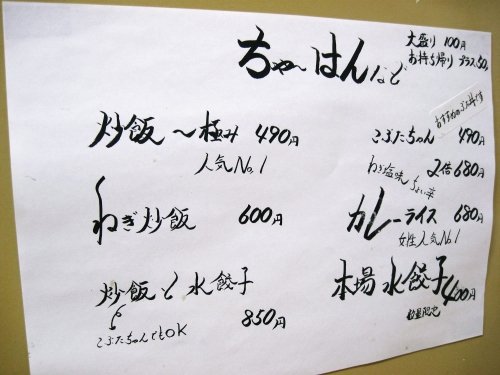 ちゃ〜はんなど
大盛り 100円
お持ち帰り プラス50円
炒飯〜極み 490円
人気No.1
ねぎ炒飯 600円
炒飯と水餃子 850円
こぶたちゃんでもOK
おすすめのぶた丼です
こぶたちゃん 490円
ねぎ塩味 ちょい辛
2倍 680円
カレーライス 680円
女性人気No.1
本場水餃子 400円
数量限定